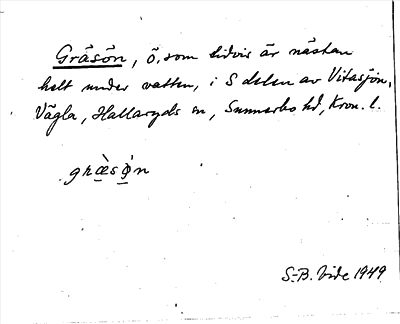 Gräsön, ö, som tidvis är nästan
helt under vatten, i S delen av Vitasjön,
Vägla, Hallaryds sn, Sunnerbo hd, Kron. l.
græ̀sø̀n
S.-B. Vide 1949